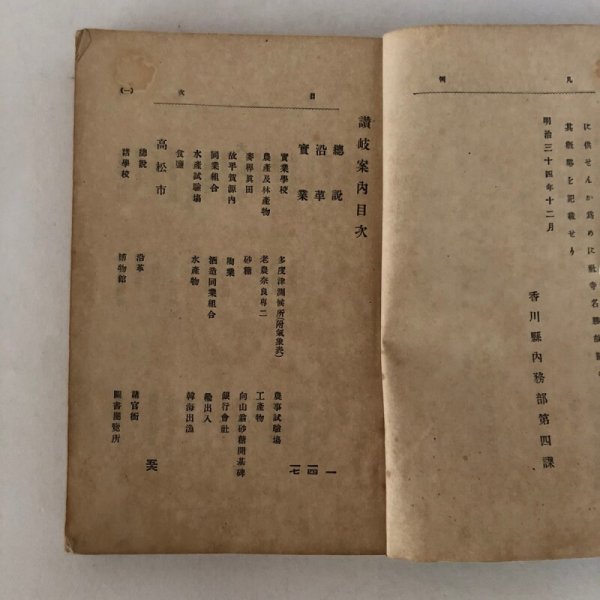 凡例
に供せんが為めに社寺名勝
其概略を記載せり
明治三十四年十二月
香川縣內務部第四課
目次 (一)
讃岐案內目次
總說 一
沿革 一四
實業 一七
實業學校 多度津測候所(附氣象表) 農事試驗場
農產及林產物 老農奈良専二 工產物
砂糖 向山翁砂糖開基碑
故平賀源內 陶業 銀行會社
同業組合 酒造同業組合 輸出入
水產試驗場 水產物 韓海出漁
食鹽
高松市 五六
總說 沿革 諸官衙
諸學校 博物館 圖書縱覽所